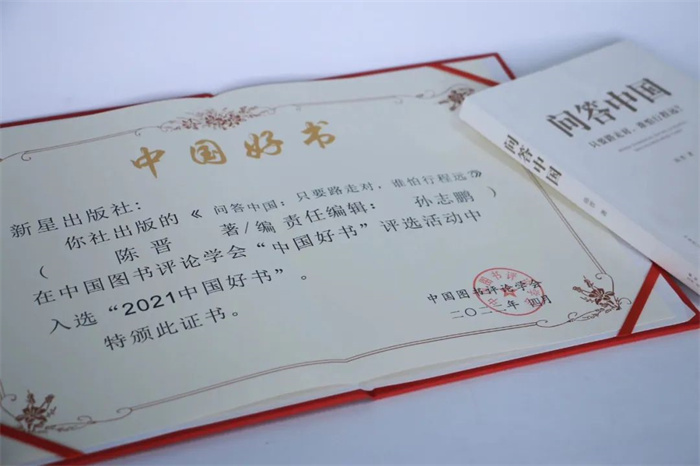 中国好书
新星出版社：
你社出版的《 问答中国：只要路走对，谁怕行程远？》
（ 陈晋 著/编 责任编辑： 孙志鹏 ）
在中国图书评论学会“中国好书”评选活动中
入选“2021中国好书”。
特颁此证书。
中国图书评论学会
年 四月
问答中国
只要路走对，谁怕行程远？
问答中国